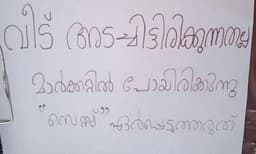 വീട് അടച്ചിട്ടിരിക്കുന്നതല്ല
മാർക്കറ്റിൽ പോയിരിക്കുന്നു
"സെസ്സ്" ഏർപ്പെടുത്തരുത്